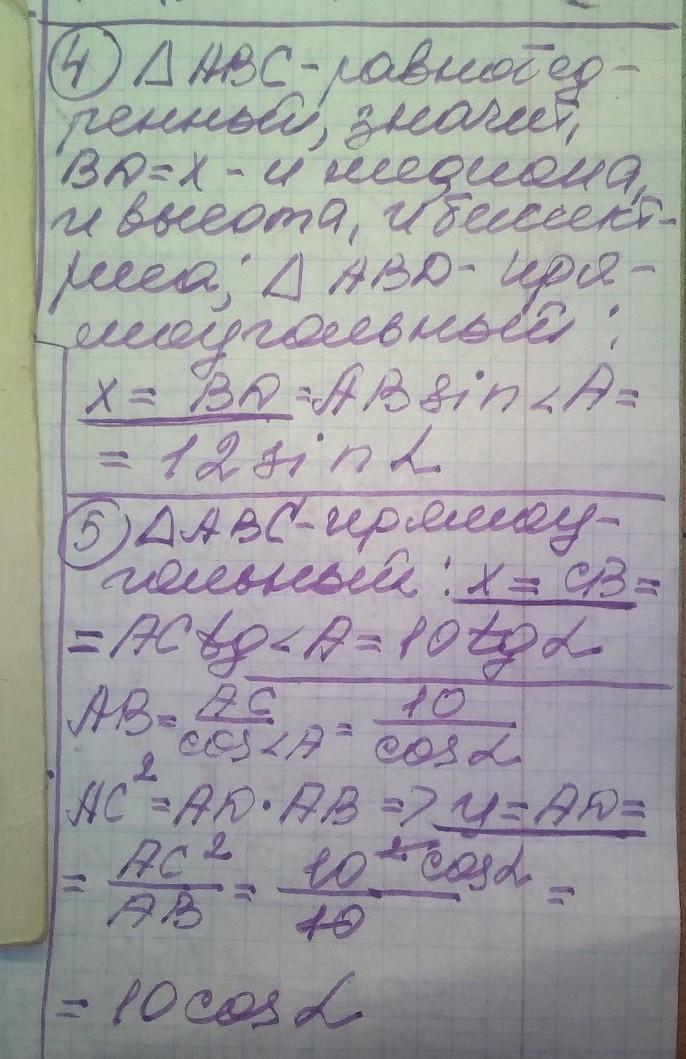 ④ △ ABC - равнобед-
ренный, значит,
BD = x - и медиана,
и высота, и биссект-
риса; △ ABD - пря-
моугольный:
x = BD = AB sin ∠A =
= 12 sin α
⑤ △ ABC - прямоу-
гольный: x = CB =
= AC tg ∠A = 10 tg α
AB = AC / cos ∠A = 10 / cos α
AC² = AD · AB => y = AD =
= AC² / AB = 10² cos α / 10 =
= 10 cos α